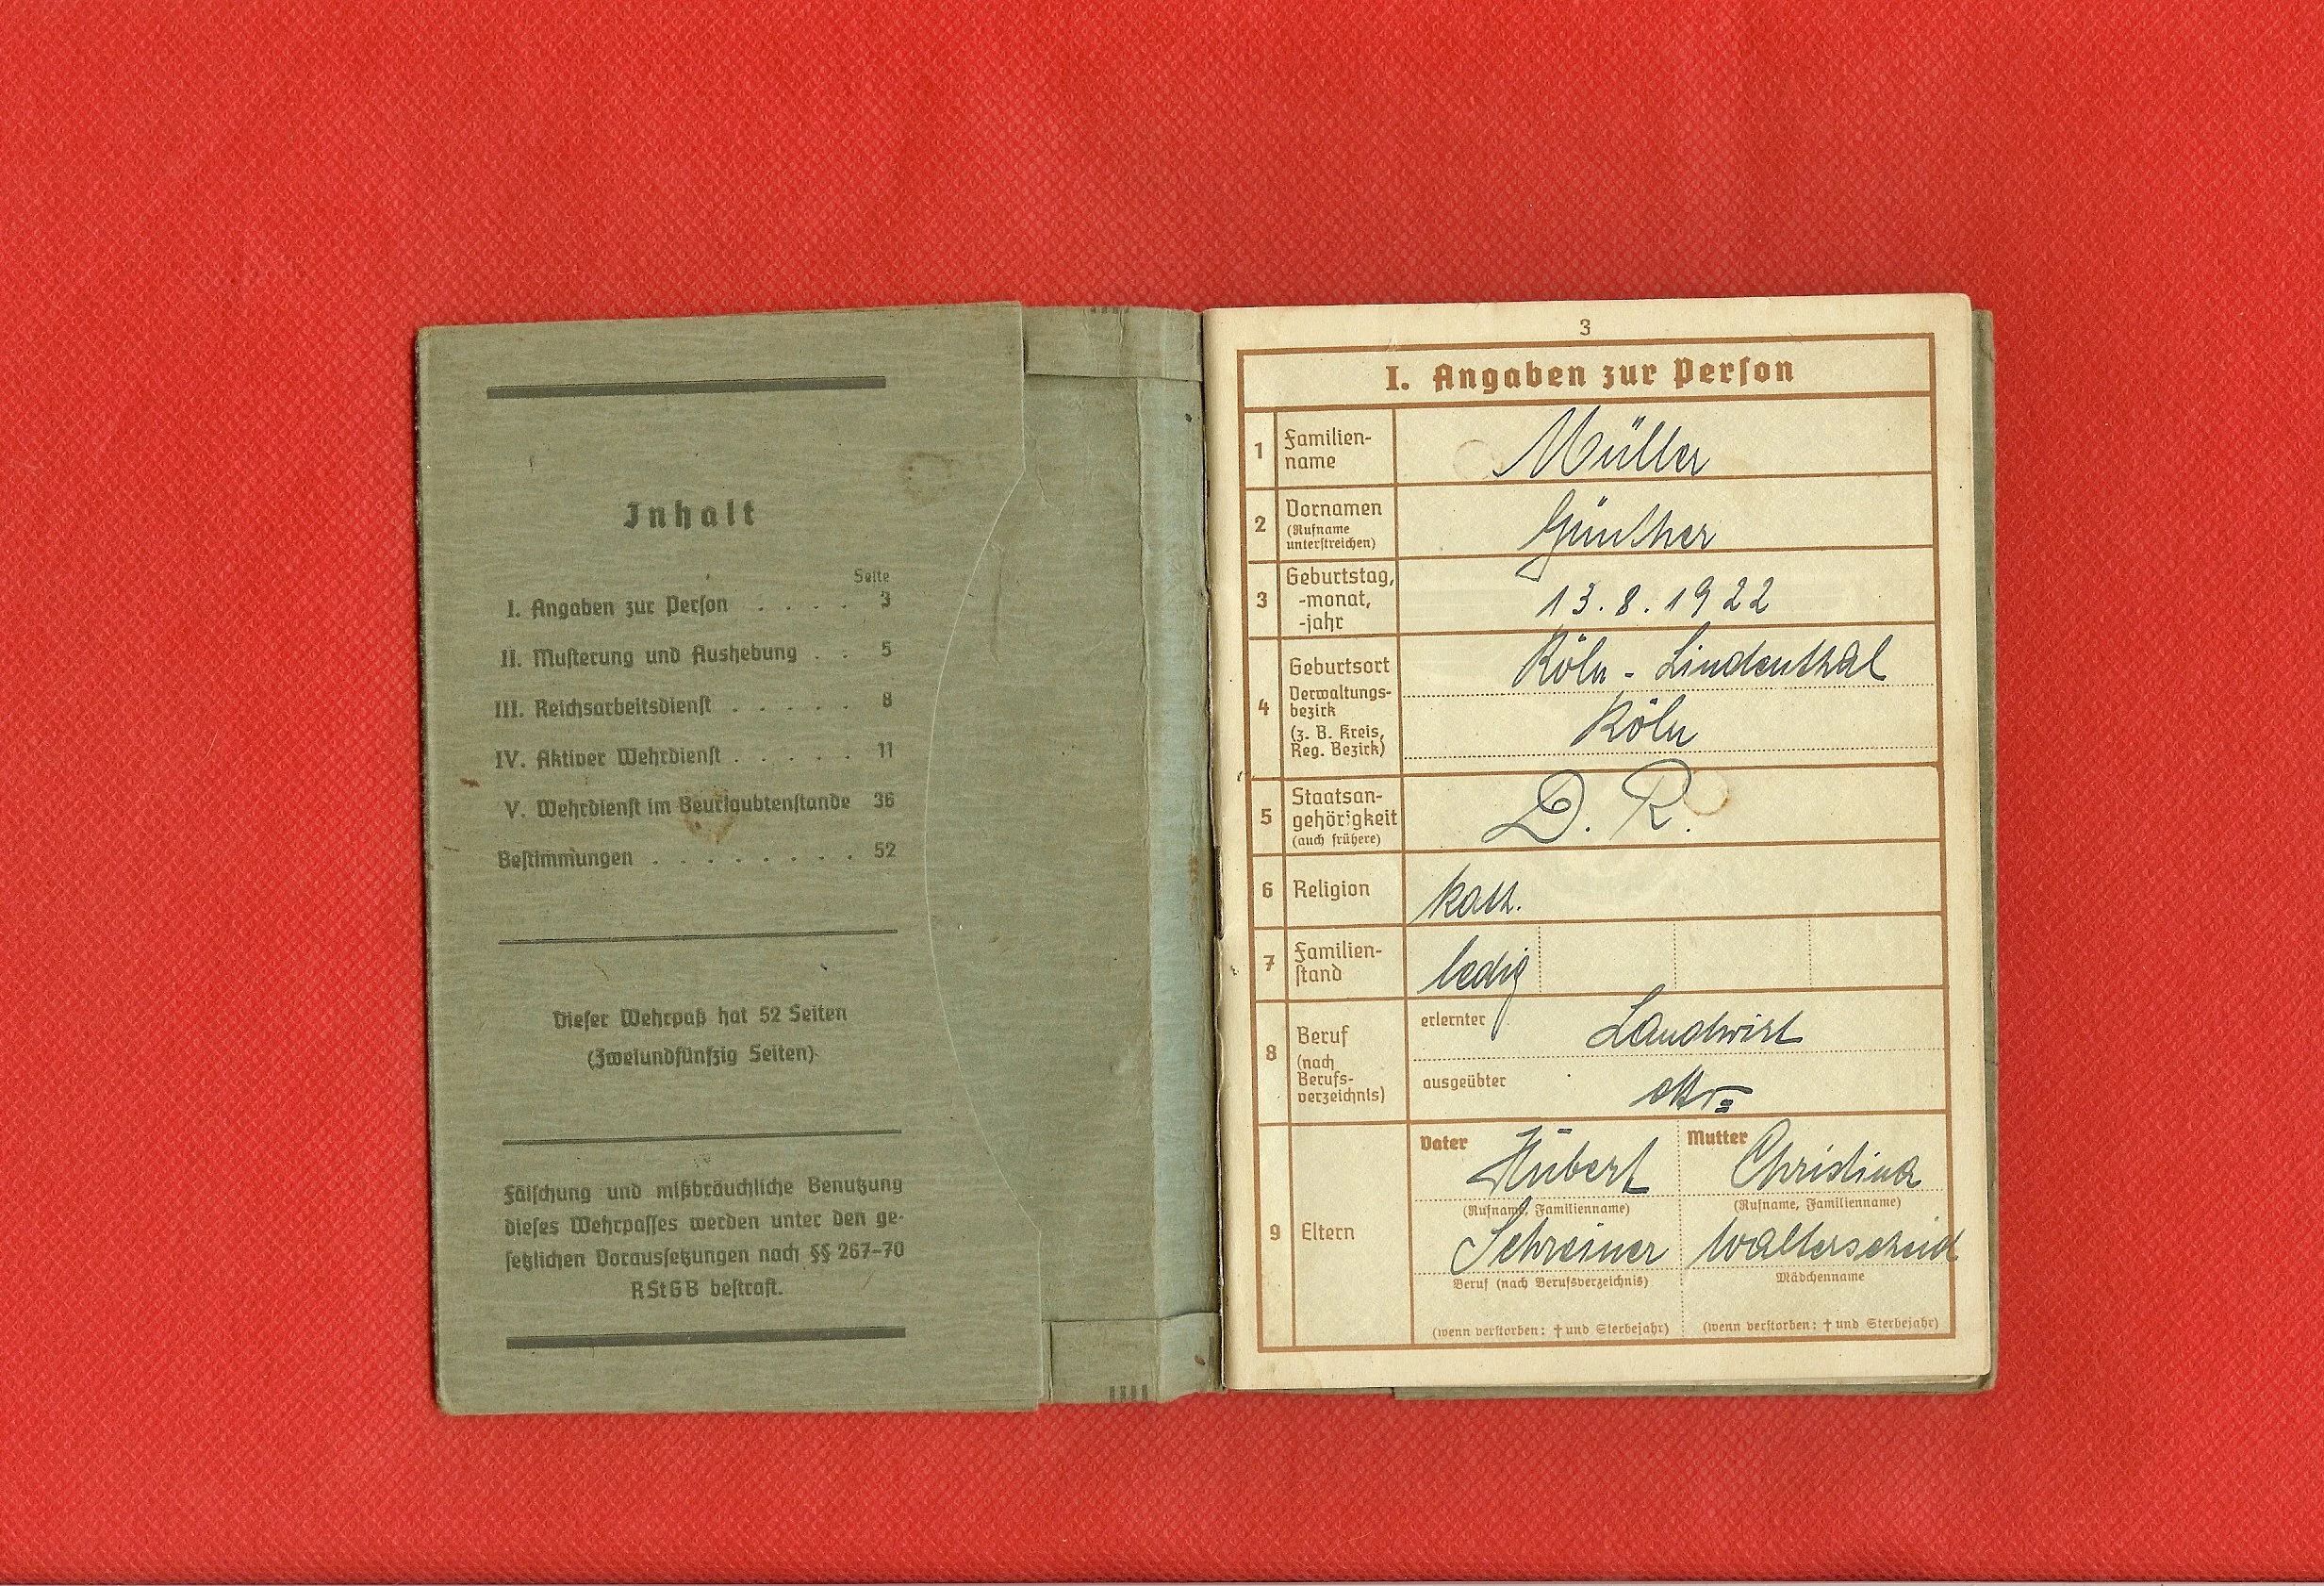 Inhalt
Seite
I. Angaben zur Person . . . . 3
II. Musterung und Aushebung . . 5
III. Reichsarbeitsdienst . . . . . 8
IV. Aktiver Wehrdienst . . . . . 11
V. Wehrdienst im Beurlaubtenstande 36
Bestimmungen . . . . . . . . . 52
Dieser Wehrpaß hat 52 Seiten
(Zweiundfünfzig Seiten)
Fälschung und mißbräuchliche Benutzung
dieses Wehrpasses werden unter den ge-
setzlichen Voraussetzungen nach §§ 267-70
RStGB bestraft.
3
I. Angaben zur Person
1 Familien-
name
Müller
2 Vornamen
(Rufname
unterstreichen)
Günther
3 Geburtstag,
-monat,
-jahr
13.8.1922
4 Geburtsort
Verwaltungs-
bezirk
(z. B. Kreis,
Reg. Bezirk)
Köln - Lindenthal
Köln
5 Staatsan-
gehörigkeit
(auch frühere)
D. R.
6 Religion
kath.
7 Familien-
stand
ledig
8 Beruf
(nach
Berufs-
verzeichnis)
erlernter Landwirt
ausgeübter
9 Eltern
Vater Hubert
(Rufname, Familienname)
Schreiner
Beruf (nach Berufsverzeichnis)
(wenn verstorben: † und Sterbejahr)
Mutter Christina
(Rufname, Familienname)
Walterscheid
Mädchenname
(wenn verstorben: † und Sterbejahr)